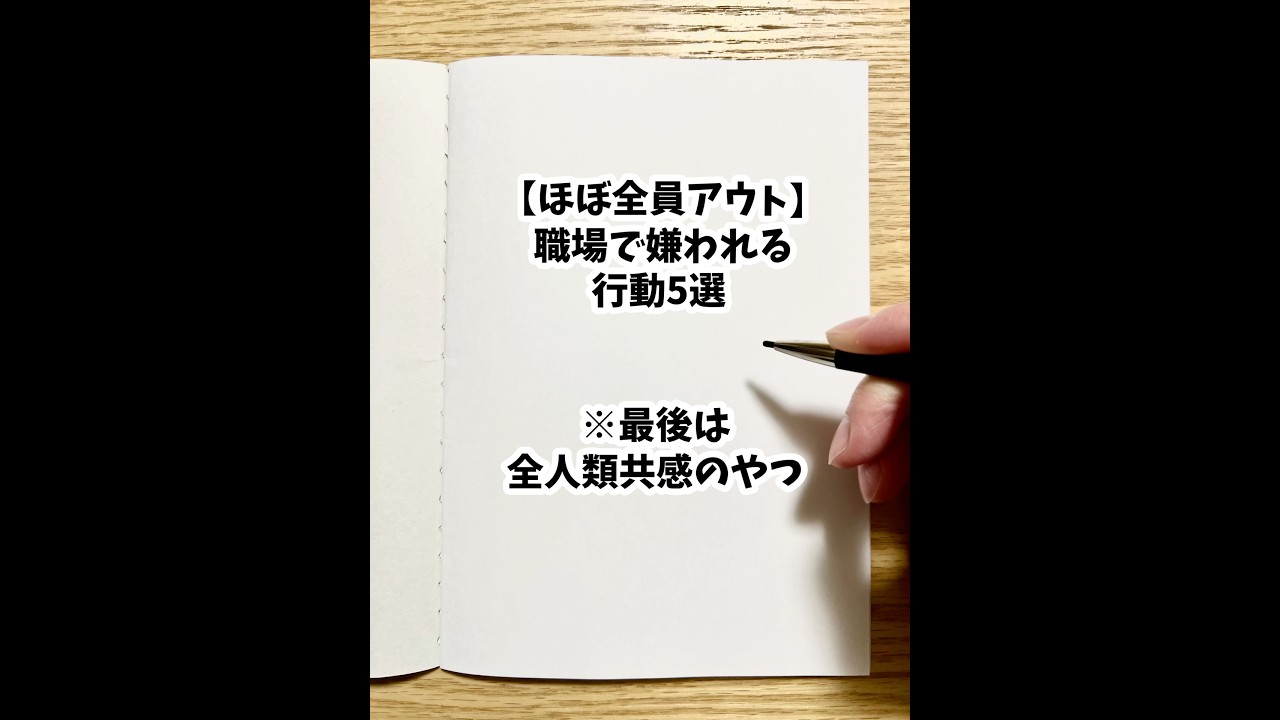 【ほぼ全員アウト】
職場で嫌われる
行動5選
※最後は
全人類共感のやつ